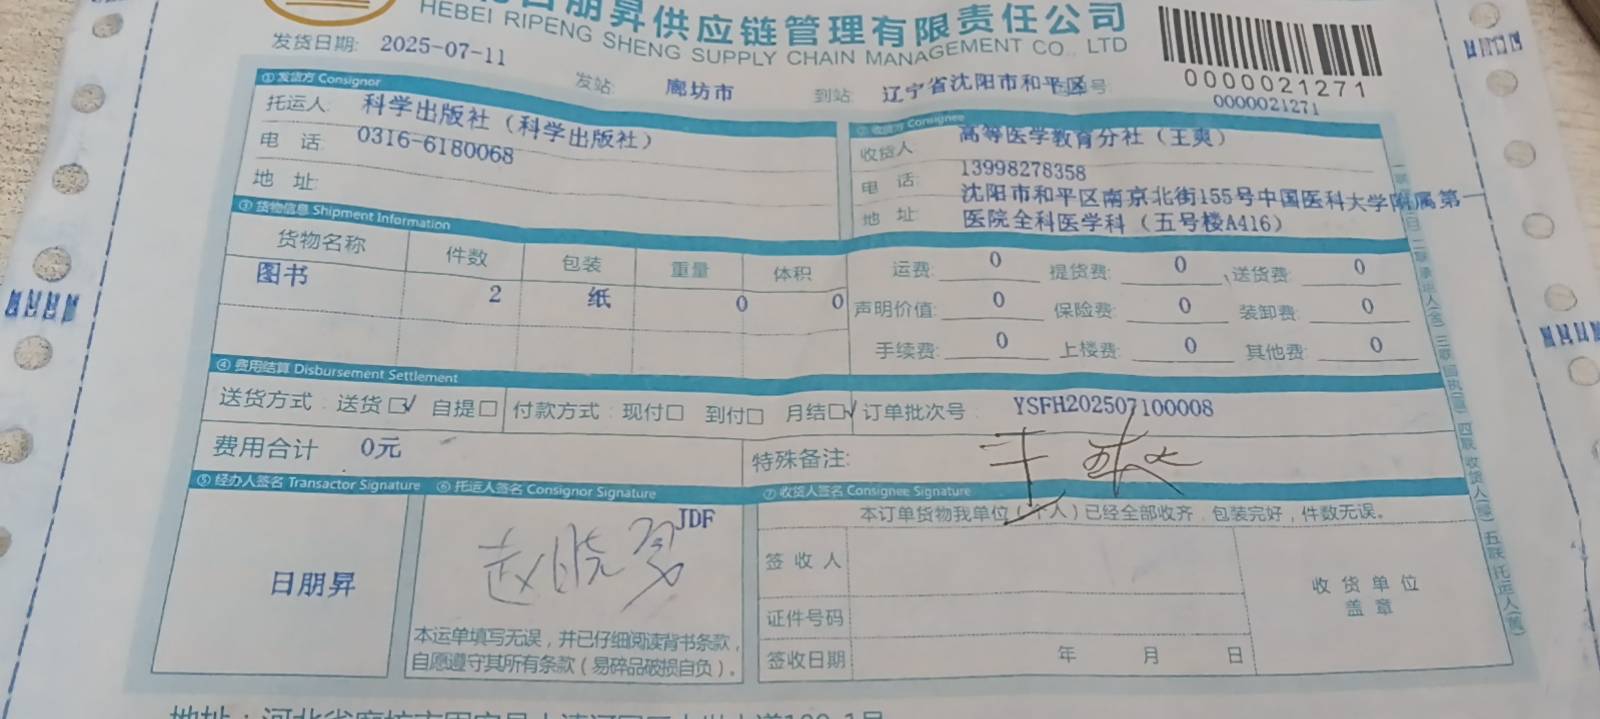 日朋昇供应链管理有限责任公司
HEBEI RIPENG SHENG SUPPLY CHAIN MANAGEMENT CO., LTD
0000021271
0000021271
发货日期: 2025-07-11
发站: 廊坊市 到站: 辽宁省沈阳市和平区
①发货方 Consignor
托运人: 科学出版社（科学出版社）
电 话: 0316-6180068
地 址:
②收货方 Consignee
收货人 高等医学教育分社（王爽）
电 话: 13998278358
地 址: 沈阳市和平区南京北街155号中国医科大学附属第一
医院全科医学科（五号楼A416）
③货物信息 Shipment Information
货物名称 件数 包装 重量 体积
图书 2 纸 0 0
运费: 0 提货费: 0 送货费: 0
声明价值: 0 保险费: 0 装卸费: 0
手续费: 0 上楼费: 0 其他费: 0
④费用结算 Disbursement Settlement
送货方式: 送货☑ 自提□ 付款方式: 现付□ 到付□ 月结☑ 订单批次号: YSFH202507100008
费用合计 0元 特殊备注:
王爽
⑤经办人签名 Transactor Signature
日朋昇
⑥托运人签名 Consignor Signature
JDF
赵晓
本运单填写无误，并已仔细阅读背书条款，
自愿遵守其所有条款（易碎品破损自负）。
⑦收货人签名 Consignee Signature
本订单货物我单位（个人）已经全部收齐，包装完好，件数无误。
签 收 人
证件号码
签收日期 年 月 日
收 货 单 位
盖 章